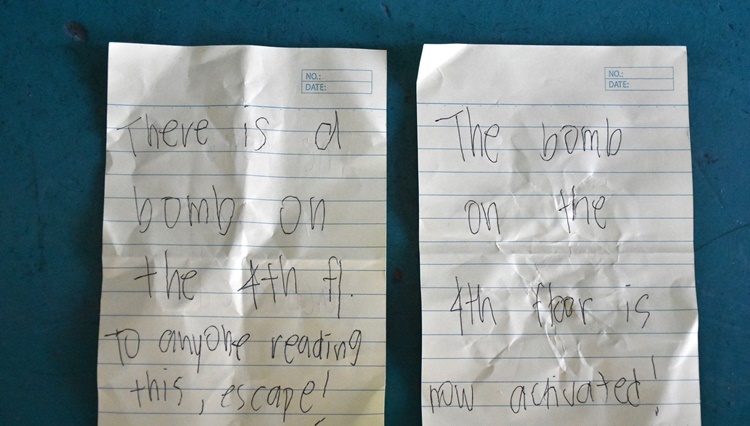 NO.:
DATE:
There is a
bomb on
the 4th fl.
To anyone reading
this, escape!
NO.:
DATE:
The bomb
on the
4th floor is
now activated!